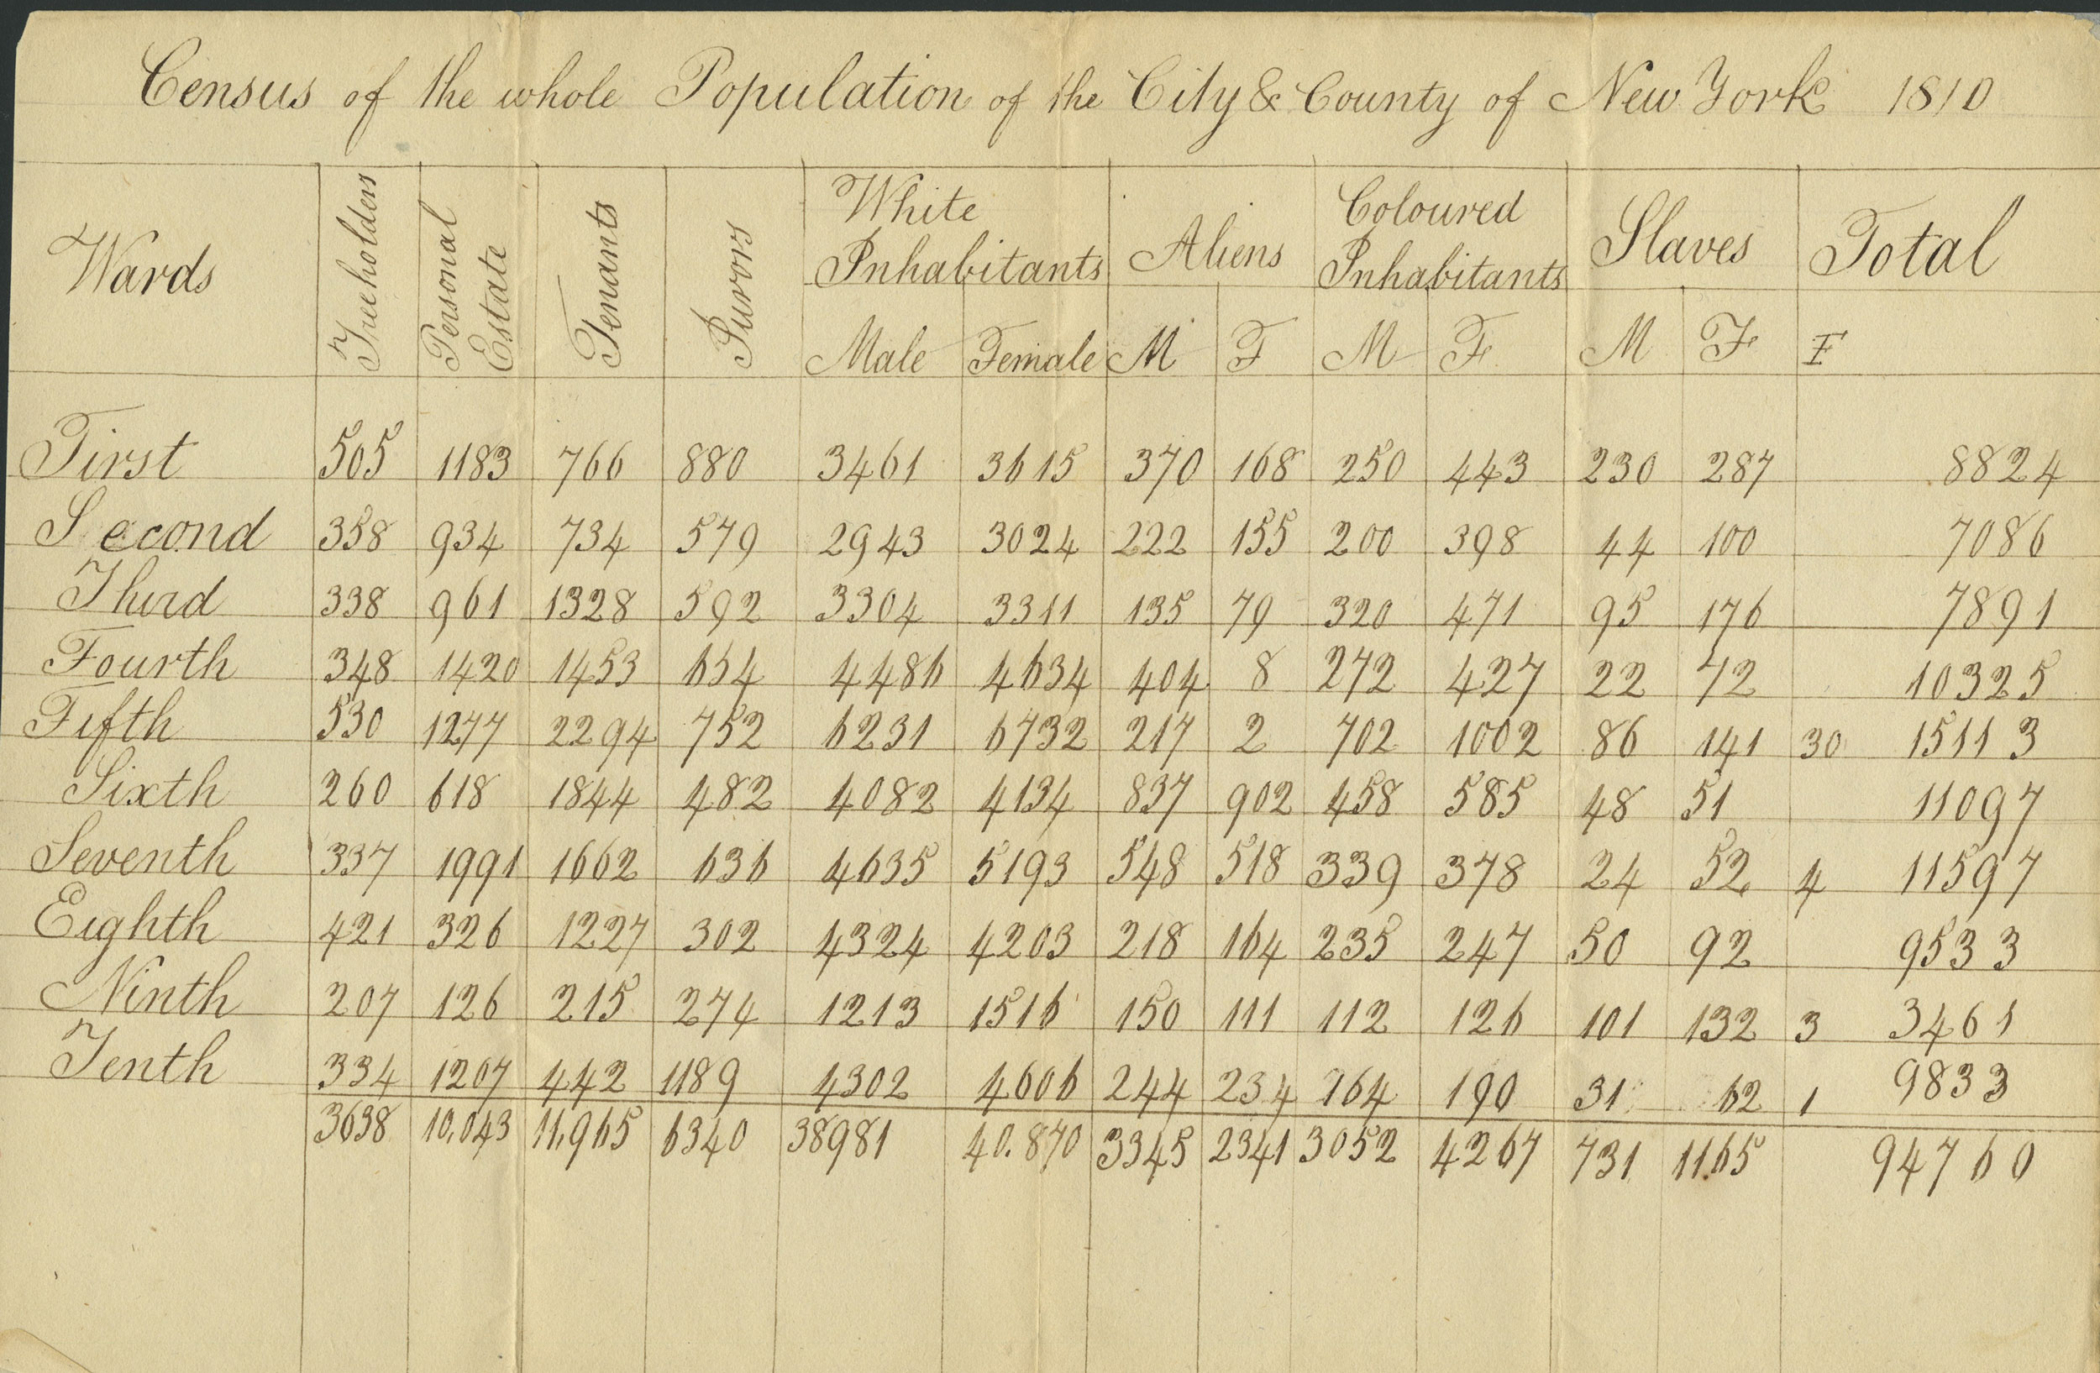 Census of the whole Population of the City & County of New York 1810
Wards Freeholders Personal Estate Tenants Jurors White Inhabitants Aliens Coloured Inhabitants Slaves Total
Male Female M F M F M F F
First 505 1183 766 880 3461 3615 370 168 250 443 230 287 8824
Second 358 934 734 579 2943 3024 222 155 200 398 44 100 7086
Third 338 961 1328 592 3304 3311 135 79 320 471 95 176 7891
Fourth 348 1420 1453 654 4486 4634 404 8 272 427 22 72 10325
Fifth 530 1277 2294 752 6231 6732 217 2 702 1002 86 141 30 15113
Sixth 260 618 1844 482 4082 4134 837 902 458 585 48 51 11097
Seventh 337 1991 1662 636 4635 5193 548 518 339 378 24 52 4 11597
Eighth 421 326 1227 302 4324 4203 218 164 235 247 50 92 9533
Ninth 207 126 215 274 1213 1516 150 111 112 126 101 132 3 3461
Tenth 334 1207 442 1189 4302 4606 244 234 164 190 31 62 1 9833
3638 10,043 11,965 6340 38981 40.870 3345 2341 3052 4267 731 1165 94760